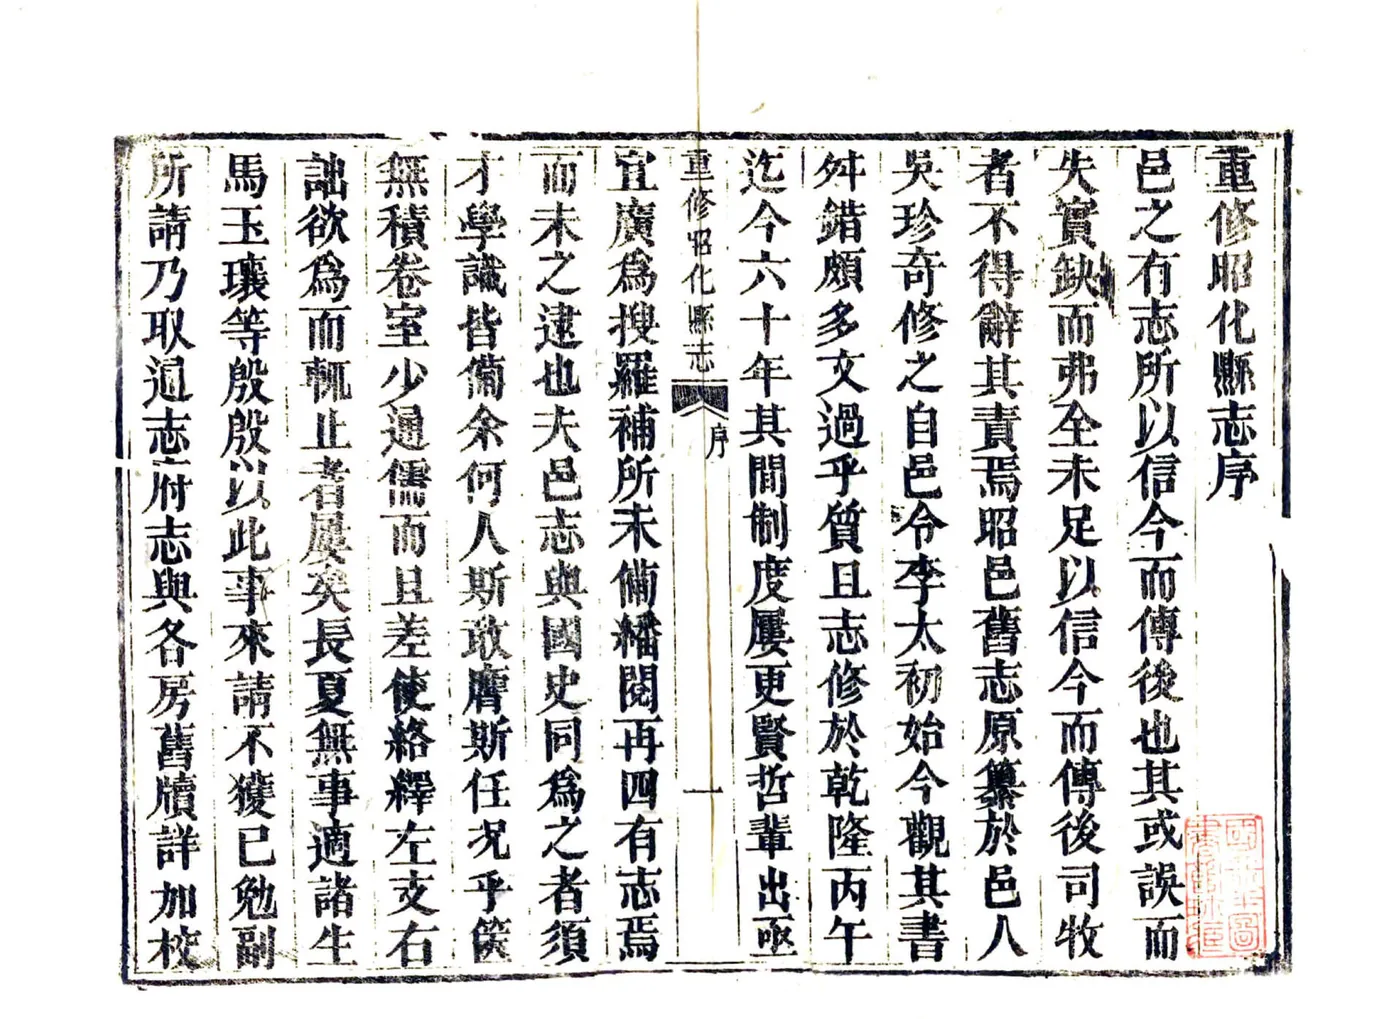 重修昭化縣志序
邑之有志所以信今而傳後也其或誤而
失實缺而弗全未足以信今而傳後司牧
者不得辭其責焉昭邑舊志原纂於邑人
吳珍奇修之自邑令李太初始今觀其書
舛錯頗多文過乎質且志修於乾隆丙午
迄今六十年其間制度屢更賢哲輩出亟
重修昭化縣志
序
一
宜廣為搜羅補所未備繙閱再四有志焉
而未之逮也夫邑志與國史同為之者須
才學識皆備余何人斯敢膺斯任况乎篋
無積卷室少通儒而且差使絡繹左支右
詘欲為而輒止者屢矣長夏無事適諸生
馬玉瓖等殷殷以此事來請不獲已勉副
所請乃取通志府志與各房舊牘詳加校